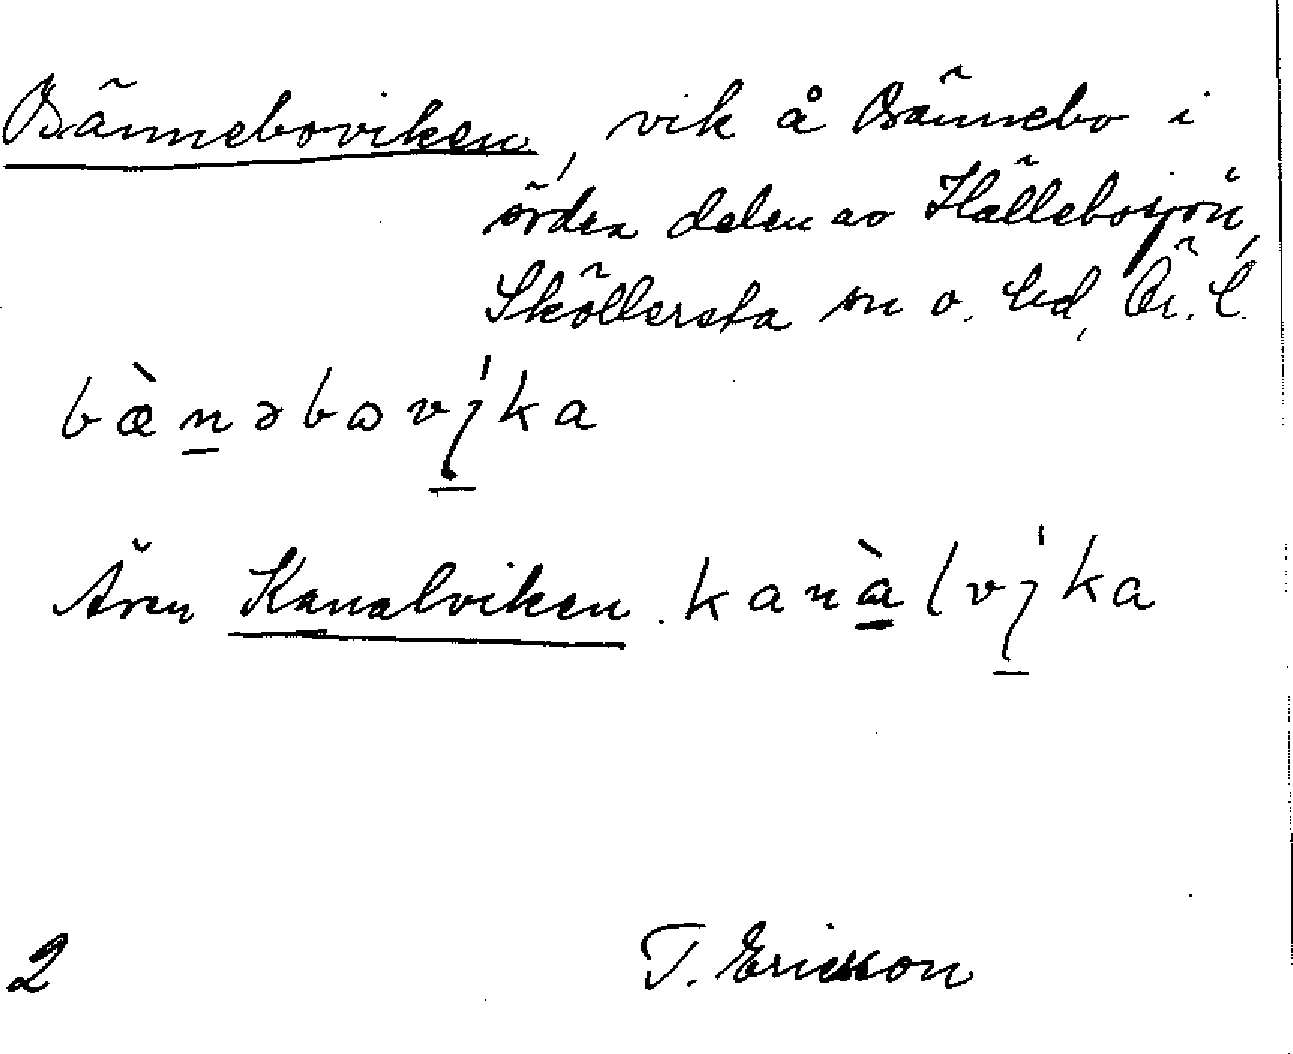 Bänneboviken, vik å Bännebo i
södra delen av Hällebosjön,
Sköllersta sn o. hd, Ör. l.
bæ̀nəbɷvi̍ka
Även Kanalviken. kanàlvi̍ka
2 T. Ericsson